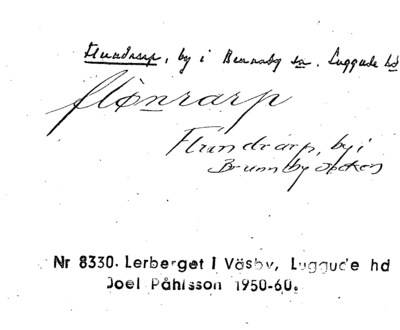 Flundrarp, by i Brunnby sn. Luggude hd
flønrarp
Flundrarp, by i
Brunnby socken
Nr 8330. Lerberget i Väsby, Luggude hd
Joel Påhlsson 1950-60.